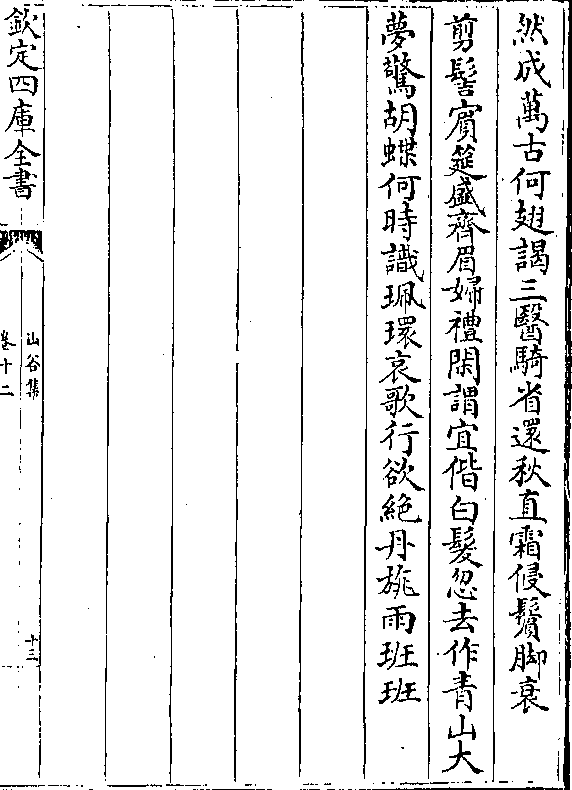 然成萬古何翅謁三醫騎省還秋直霜侵鬢脚衰
剪髻賔筵盛齊眉婦禮閑謂宜偕白髮忽去作青山大
夢驚胡蝶何時識珮環哀歌行欲絶丹旐雨班班
欽定四庫全書
山谷集
卷十二
十三